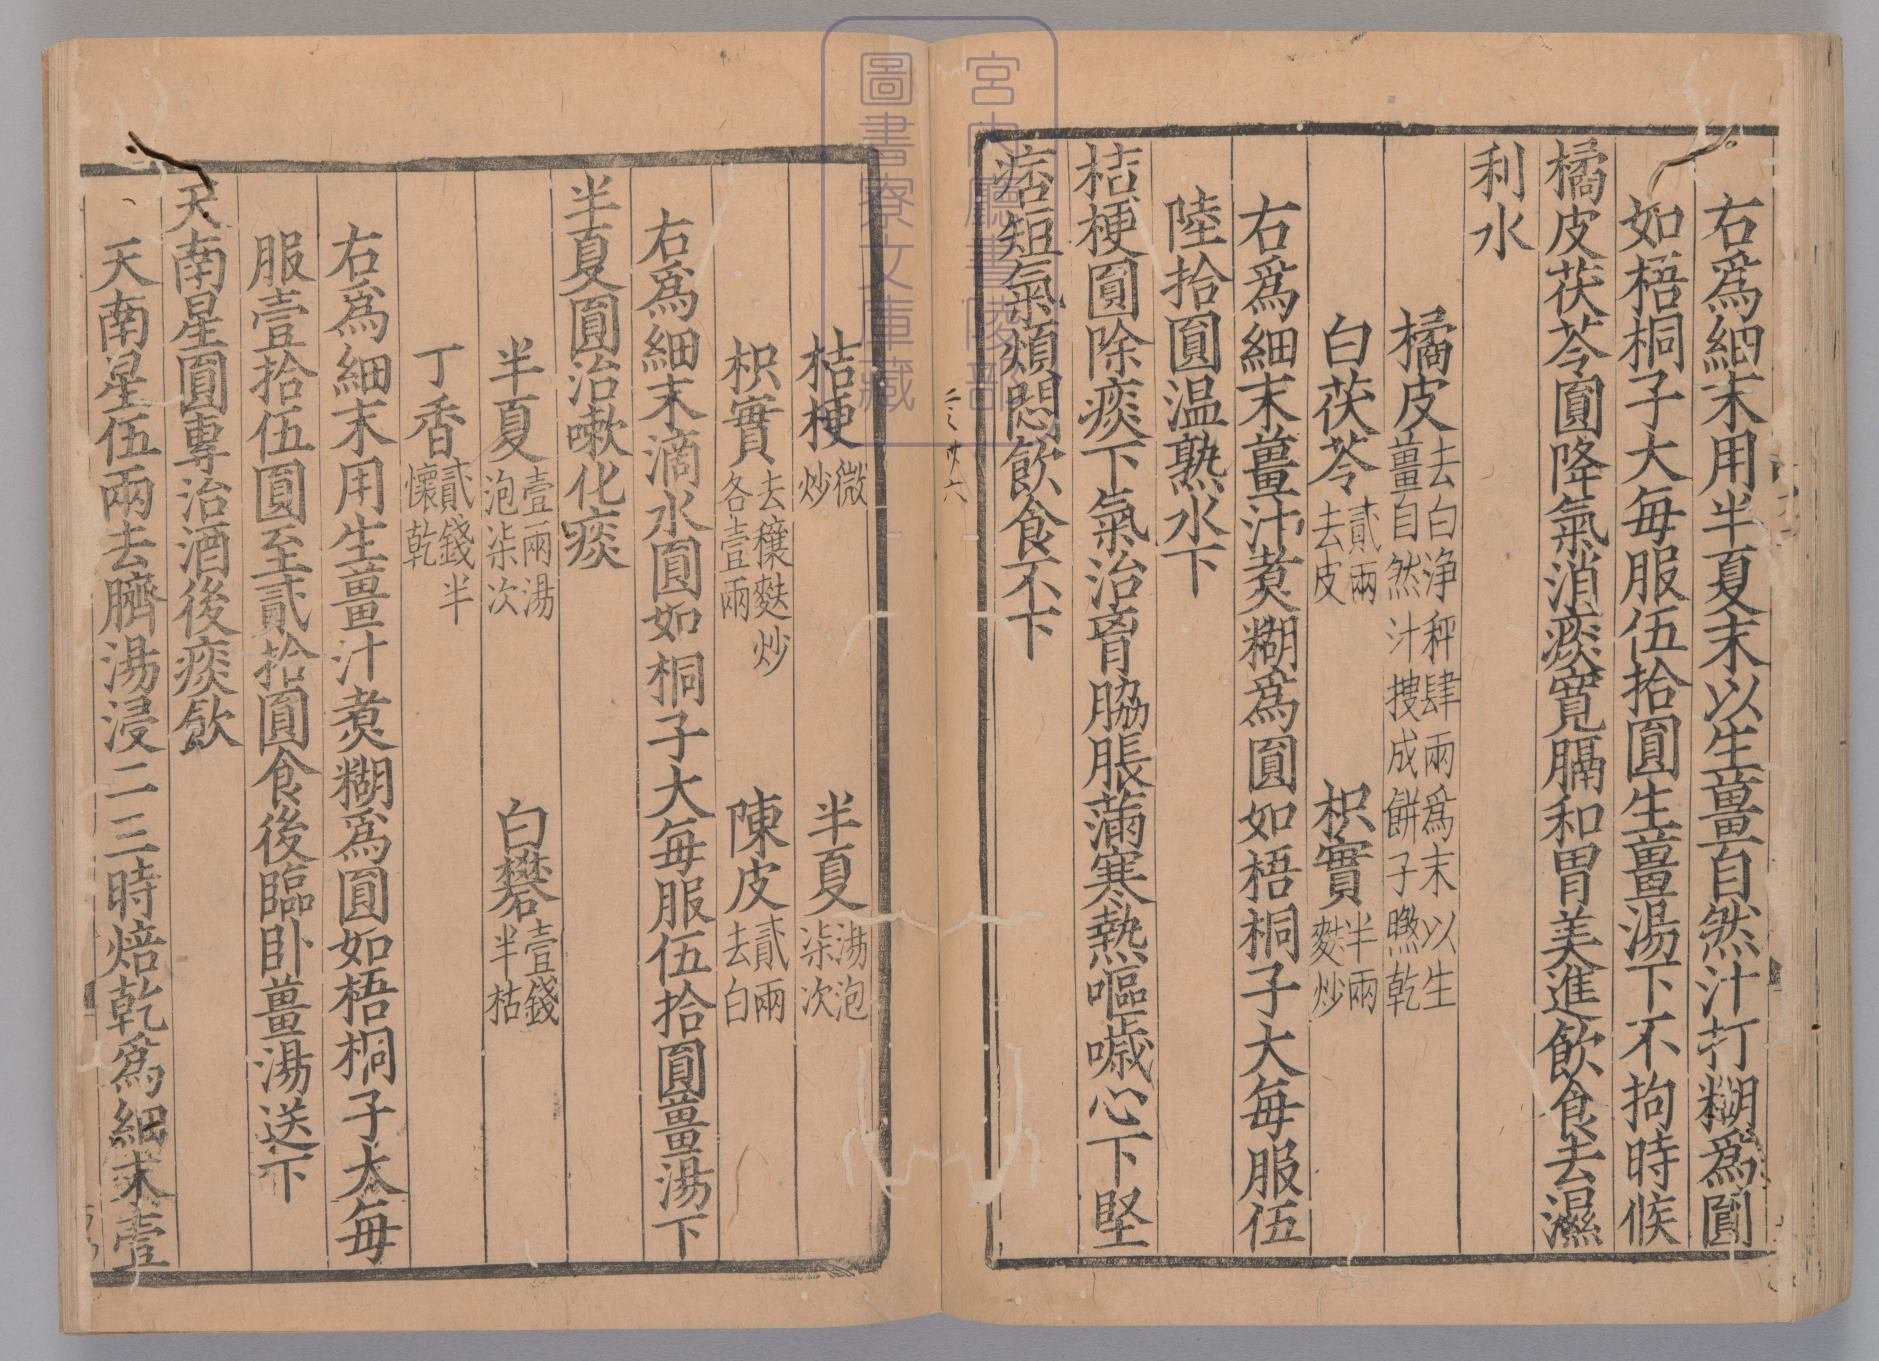 右爲細末用半夏末以生薑自然汁打糊爲圓
如梧桐子大每服伍拾圓生薑湯下不拘時候
橘皮茯苓圓降氣消痰寬膈和胃美進飲食去濕
利水
橘皮去白淨秤肆兩爲末以生薑自然汁搜成餅子㬠乾
白茯苓貳兩去皮 枳實半兩麩炒
右爲細末薑汁煑糊爲圓如梧桐子大每服伍
陸拾圓温熟水下
桔梗圓除痰下氣治脅脇脹滿寒熱嘔噦心下堅
痞短氣煩悶飲食不下
桔梗微炒 半夏湯泡柒次
枳實去穰麩炒各壹兩 陳皮貳兩去白
右爲細末滴水圓如桐子大每服伍拾圓薑湯下
半夏圓治嗽化痰
半夏壹兩湯泡柒次 白礬壹錢半枯
丁香貳錢半懷乾
右爲細末用生薑汁煑糊爲圓如梧桐子大每
服壹拾伍圓至貳拾圓食後臨卧薑湯送下
天南星圓專治酒後痰飲
天南星伍兩去臍湯浸二三時焙乾爲細末壹
宮内廳書陵部
圖書寮文庫藏